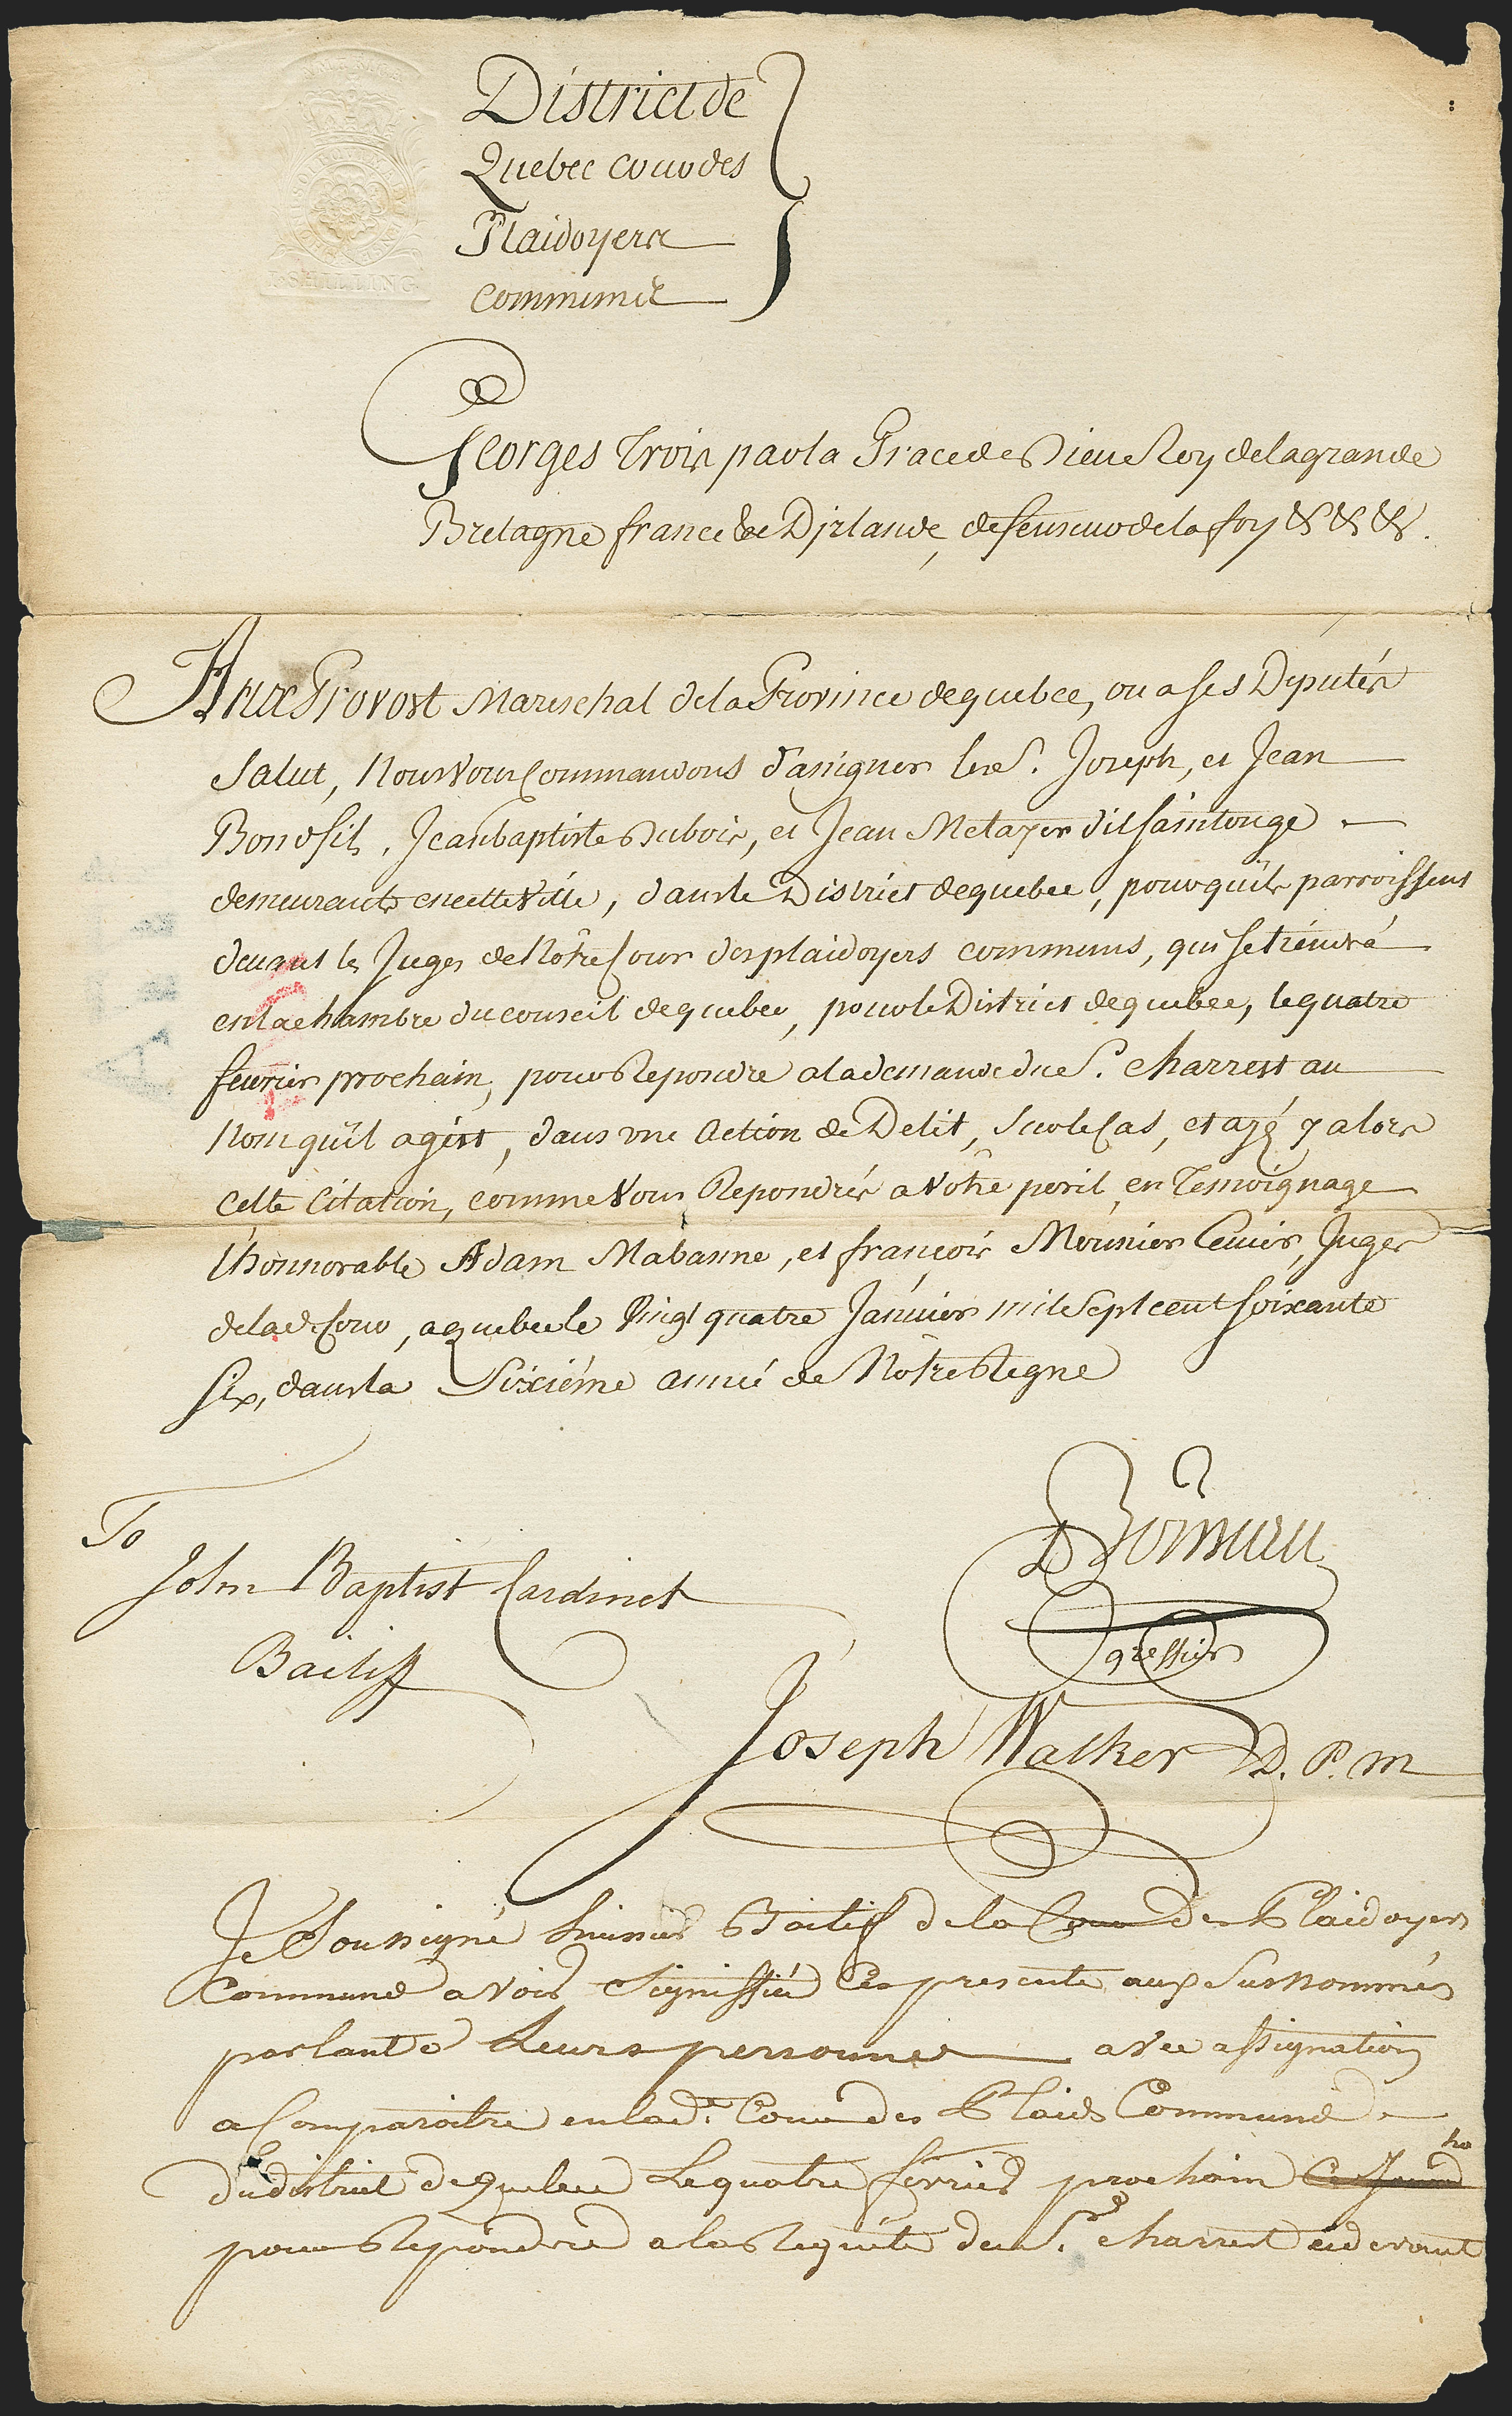 I SHILLING
District de
Quebec cour des
Plaidoyers
communes
Georges Trois par la Grace de Dieu Roy de la grande
Bretagne france & Djrlande, defenseur de la foy &c &c &c.
Aux Provost Mareschal de la Province de quebec, ou a ses Deputés
Salut, Nous Vous Commandons d'assigner les S. Joseph, et Jean
Bondfils, Jean baptiste Dubois, et Jean Metayer dit saintonge
demeurants en cette Ville, dans le District de quebec, pour qu'ils parroissent
devant les Juges de Nôtre Cour des plaidoyers communs, qui se tiendra
en la chambre du conseil de quebec, pour le District de quebec, le quatre
fevrier prochain, pour Repondre a la demande du S. Charrest au
Nom qu'il agist, dans une Action de Delit, sur le Cas, et ayé y alors
cette Citation, comme Vous Repondrés a Vôtre peril, en Temoignage
l'honnorable Adam Mabanne, et françois Mounier Ecuier, Juges
de lad. Cour, a quebec le Vingt quatre Janvier mil Sept cent soixante
six, dans la Sixiéme année de Nôtre Regne
To
John Baptist Cardinet
Bailiff
greffier
Joseph Walker D. P. M
Je Soussigné huissier Bailif de la Cour des Plaidoyers
Commund avoir Signiffié Ces presente aux Surnommés
parlant a Leurs personnes avec assignation
a Comparoitre en lad. Cour des Plaids Commund
du district de quebec Le quatre fevrier prochain
pour Repondre a la Requête du S. Charrest cidevant